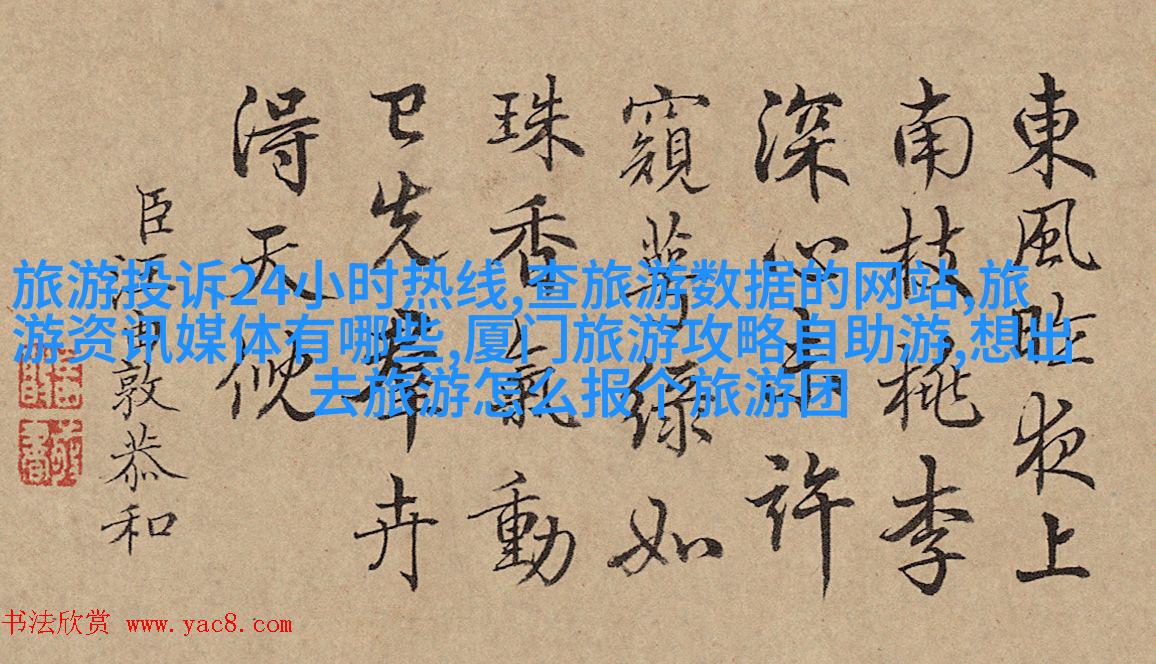 東風昨夜上
南枝桃李
深心未許
窺萼綠如
珠香氣動
已先羣卉
淂天倪
臣汪由敦恭和
旅游投诉24小时热线,查旅游数据的网站,旅
游资讯媒体有哪些,厦门旅游攻略自助游,想出
去旅游怎么报个旅游团
书法欣赏 www.yac8.com